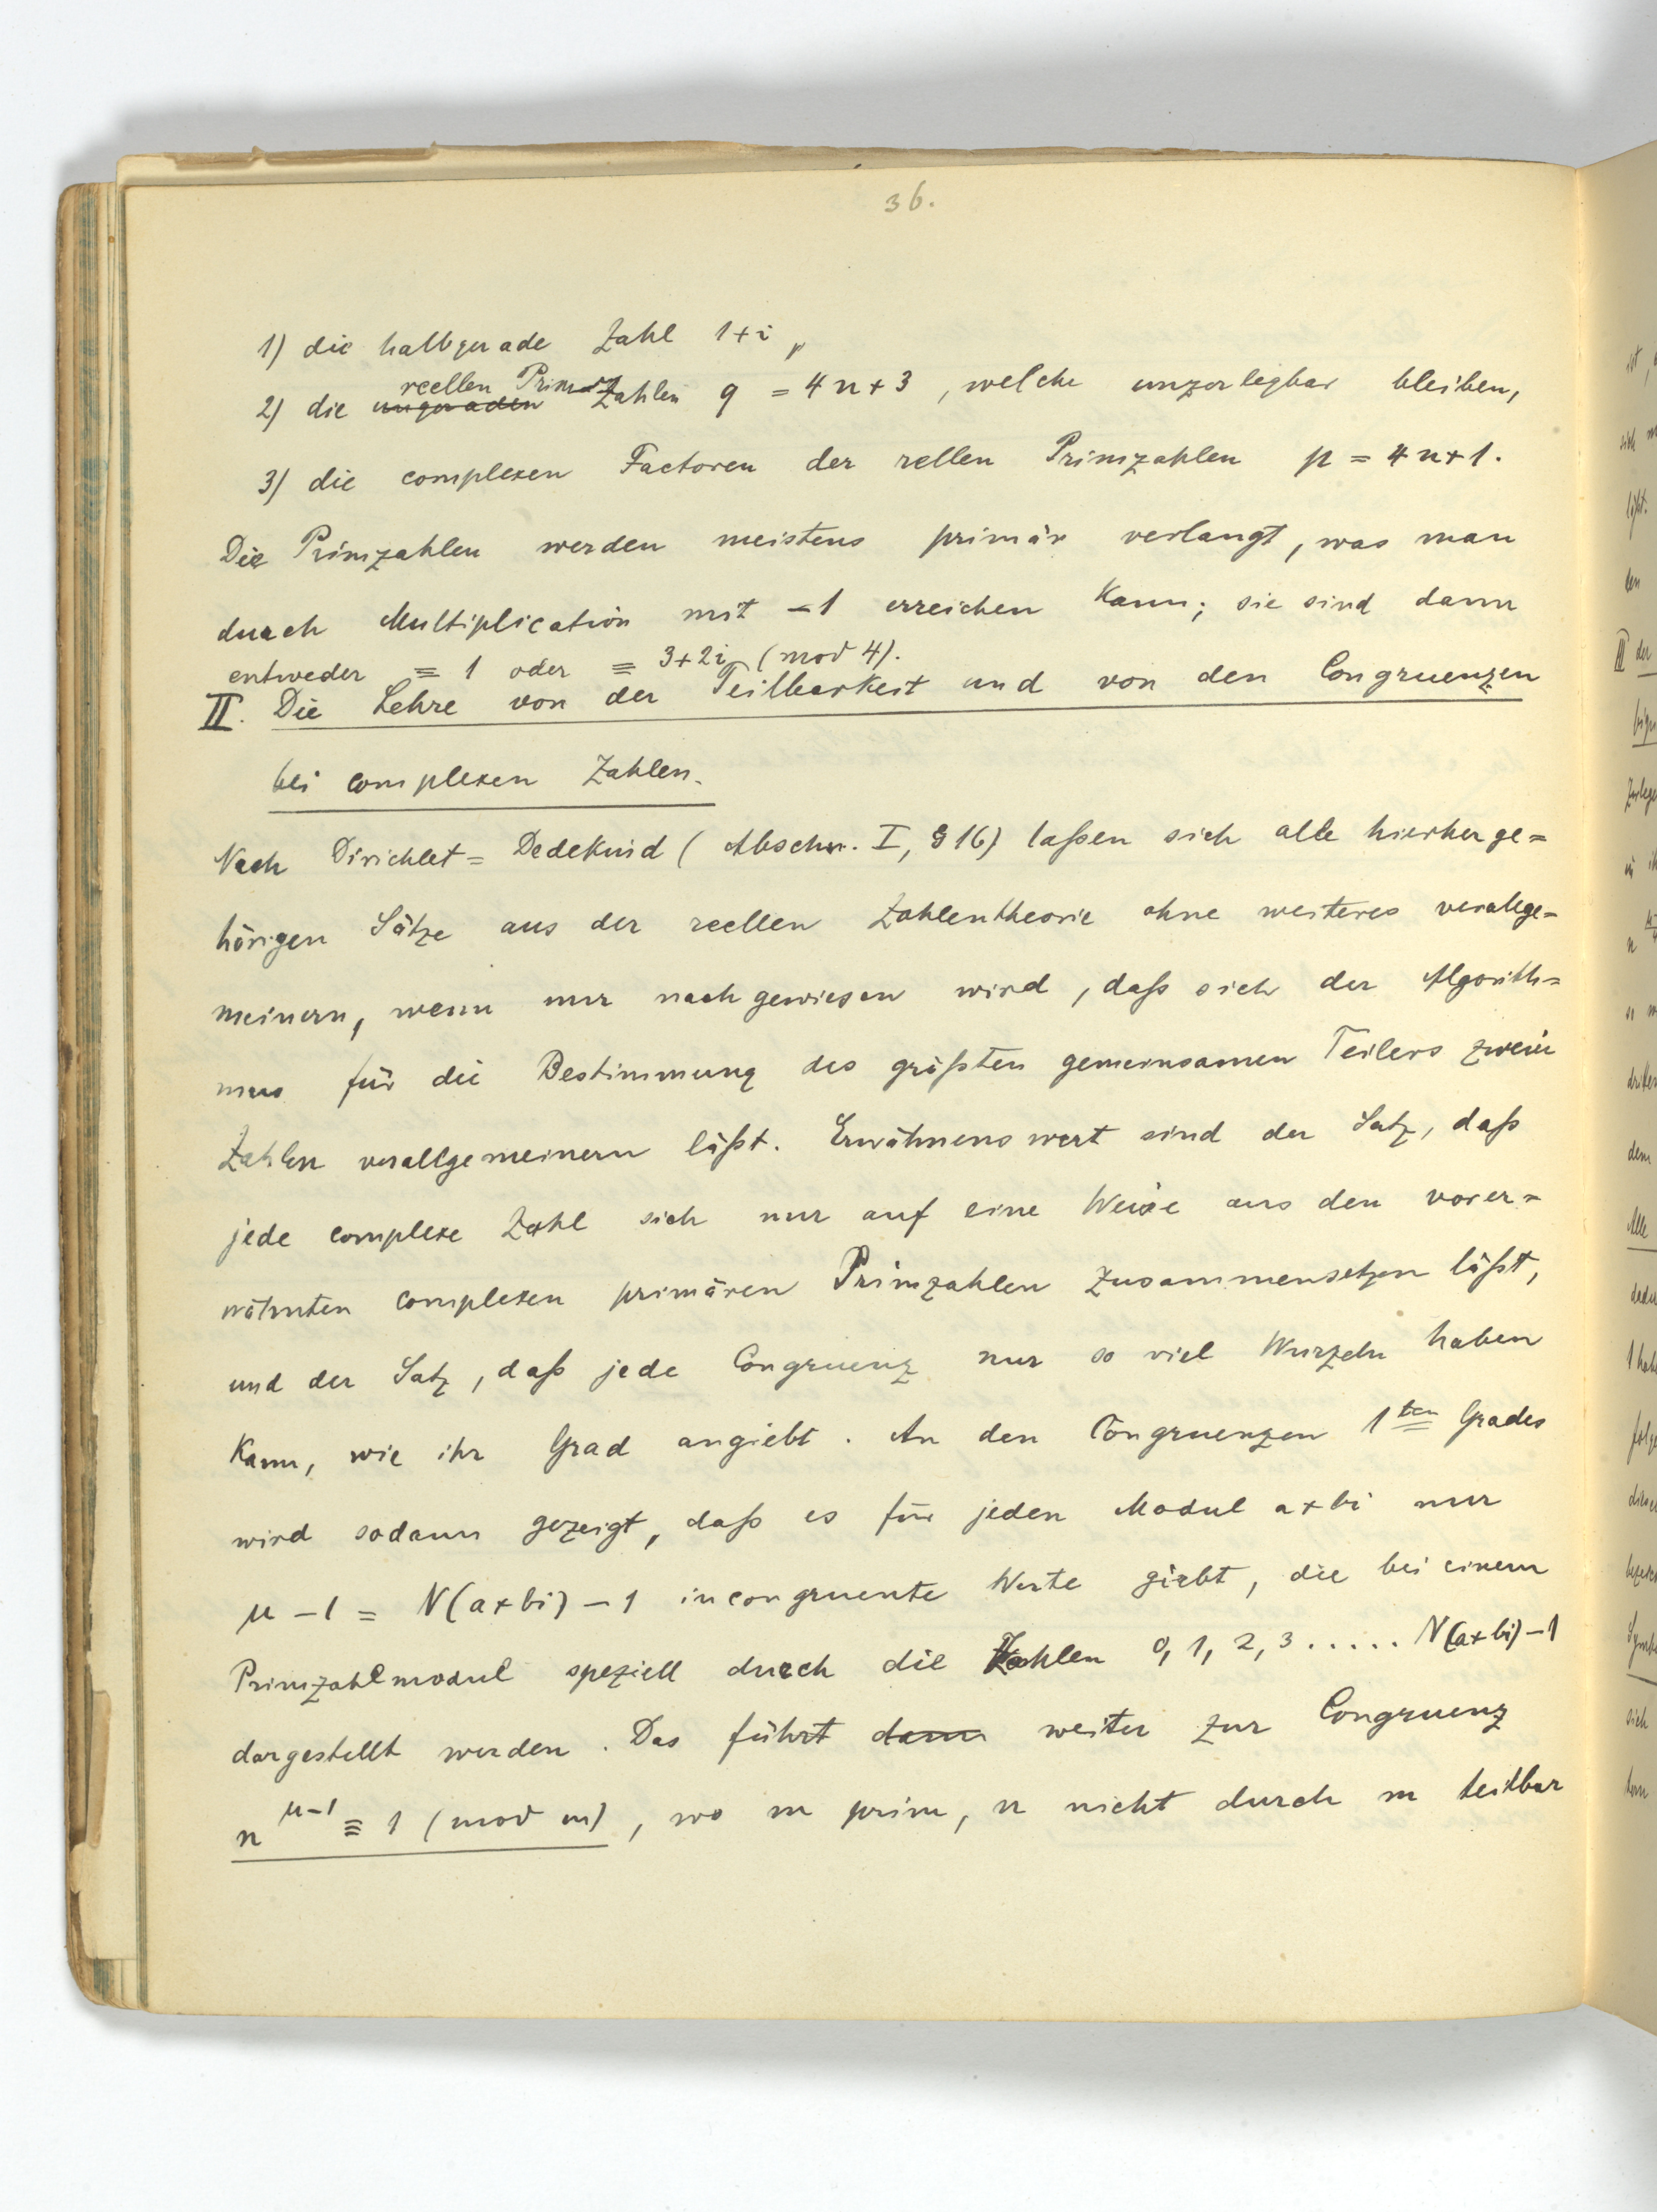 36.
1) die halbgerade Zahl 1+i,
reellen Prim
2) die ungeraden Zahlen q = 4n+3, welche unzerlegbar bleiben,
3) die complexen Factoren der rellen Primzahlen p = 4n+1.
Die Primzahlen werden meistens primär verlangt, was man
durch Multiplication mit -1 erreichen kann; sie sind dann
entweder ≡ 1 oder ≡ 3+2i (mod 4).
II. Die Lehre von der Teilbarkeit und von den Congruenzen
bei complexen Zahlen.
Nach Dirichlet=Dedekind (Abschn. I, § 16) laßen sich alle hierherge=
hörigen Sätze aus der reellen Zahlentheorie ohne weiteres verallge=
meinern, wenn nur nachgewiesen wird, daß sich der Algorith=
mus für die Bestimmung des größten gemeinsamen Teilers zweier
Zahlen verallgemeinern läßt. Erwähnenswert sind der Satz, daß
jede complexe Zahl sich nur auf eine Weise aus den vorer=
wähnten complexen primären Primzahlen zusammensetzen läßt,
und der Satz, daß jede Congruenz nur so viel Wurzeln haben
kann, wie ihr Grad angiebt. An den Congruenzen 1ten Grades
wird sodann gezeigt, daß es für jeden Modul a+bi nur
μ-1 = N(a+bi)-1 incongruente Werte giebt, die bei einem
Primzahlmodul speziell durch die Zahlen 0, 1, 2, 3 ..... N(a+bi)-1
dargestellt werden. Das führt dann weiter zur Congruenz
n^{μ-1} ≡ 1 (mod m), wo m prim, n nicht durch m teilbar